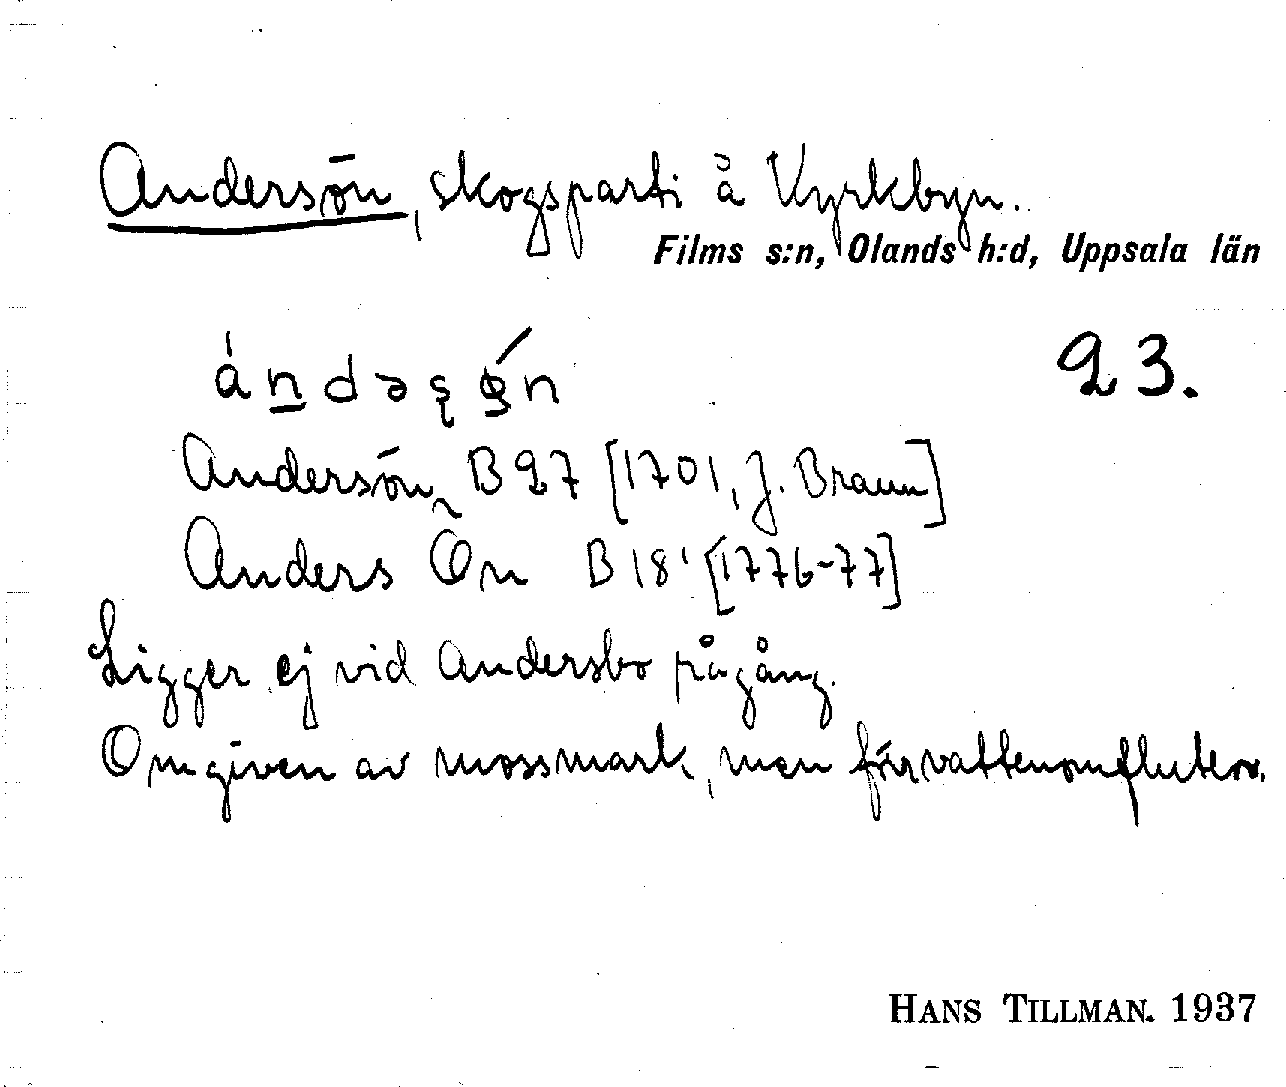 Andersön, skogsparti å Kyrkbyn.
Films s:n, Olands h:d, Uppsala län
ándəşǿn 23.
Andersön B27 [1701, J. Braun]
Anders Ön B18' [1776-77]
Ligger ej vid Andersbo rågång.
Omgiven av mossmark, men förr vattenomfluten.
HANS TILLMAN. 1937